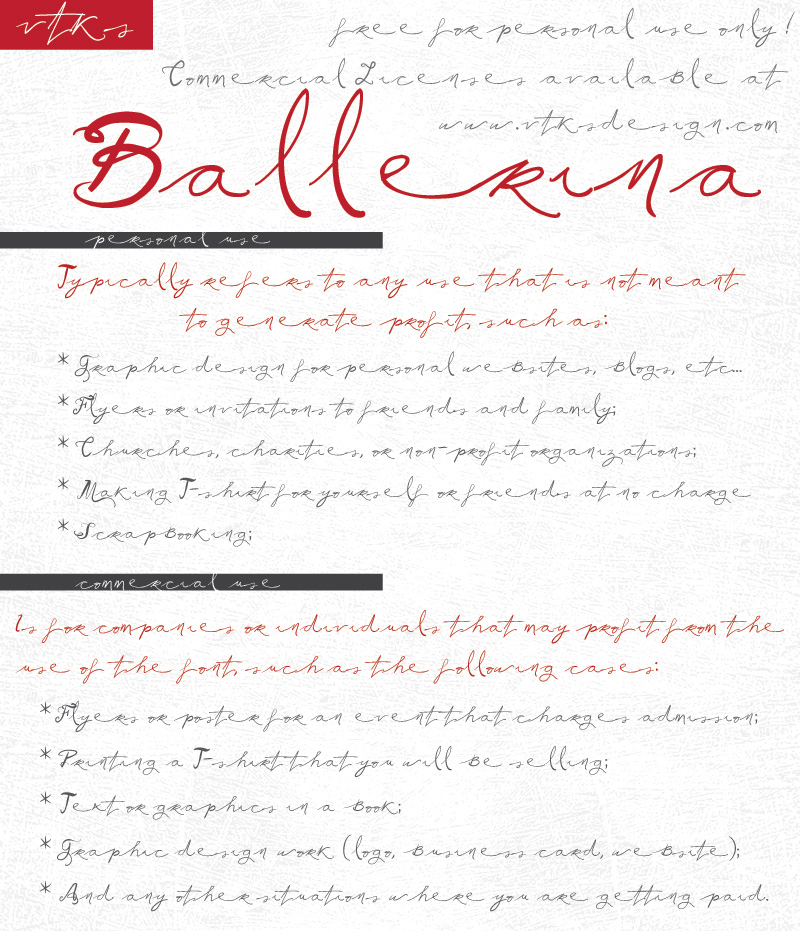 vtks
free for personal use only!
Commercial Licenses available at
www.vtksdesign.com
Ballerina
personal use
Typically refers to any use that is not meant
to generate profit, such as:
* Graphic design for personal websites, blogs, etc...
* Flyers or invitations to friends and family;
* Churches, charities, or non-profit organizations;
* Making T-shirt for yourself or friends at no charge
* Scrapbooking;
commercial use
Is for companies or individuals that may profit from the
use of the font, such as the following cases:
* Flyers or poster for an event that charges admission;
* Printing a T-shirt that you will be selling;
* Text or graphics in a book;
* Graphic design work (logo, business card, website);
* And any other situations where you are getting paid.